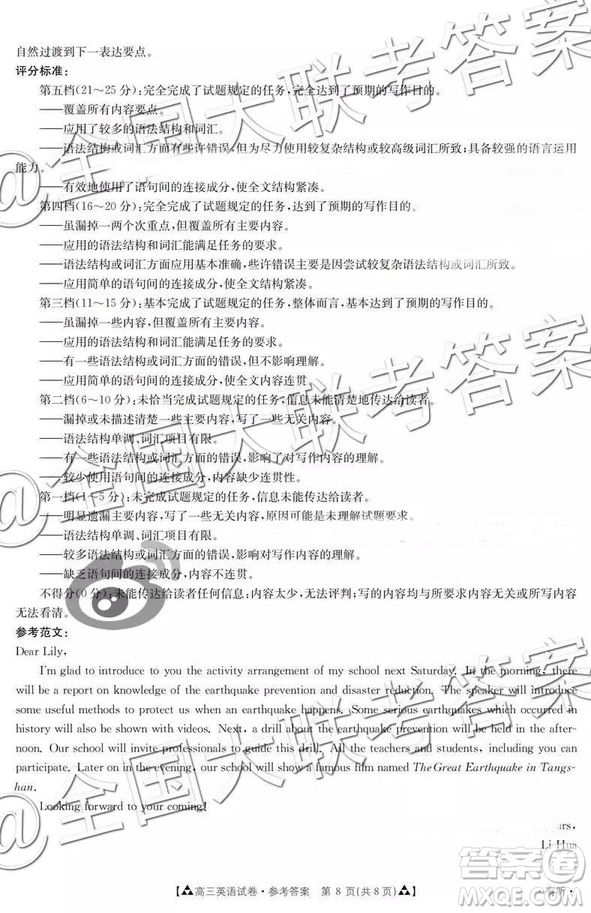 自然过渡到下一表达要点。
评分标准：
第五档(21～25 分)：完全完成了试题规定的任务，完全达到了预期的写作目的。
—覆盖所有内容要点。
—应用了较多的语法结构和词汇。
—语法结构或词汇方面有些许错误，但为尽力使用较复杂结构或较高级词汇所致；具备较强的语言运用
能力。
—有效地使用了语句间的连接成分，使全文结构紧凑。
第四档(16～20 分)：完全完成了试题规定的任务，达到了预期的写作目的。
—虽漏掉一两个次重点，但覆盖所有主要内容。
—应用的语法结构和词汇能满足任务的要求。
—语法结构或词汇方面应用基本准确，些许错误主要是因尝试较复杂语法结构或词汇所致。
—应用简单的语句间的连接成分，使全文结构紧凑。
第三档(11～15 分)：基本完成了试题规定的任务，整体而言，基本达到了预期的写作目的。
—虽漏掉一些内容，但覆盖所有主要内容。
—应用的语法结构和词汇能满足任务的要求。
—有一些语法结构或词汇方面的错误，但不影响理解。
—应用简单的语句间的连接成分，使全文内容连贯。
第二档(6～10 分)：未恰当完成试题规定的任务，信息未能清楚地传达给读者。
—漏掉或未描述清楚一些主要内容，写了一些无关内容。
—语法结构单调、词汇项目有限。
—有一些语法结构或词汇方面的错误，影响了对写作内容的理解。
—较少使用语句间的连接成分，内容缺少连贯性。
第一档(1～5 分)：未完成试题规定的任务，信息未能传达给读者。
—明显遗漏主要内容，写了一些无关内容，原因可能是未理解试题要求。
—语法结构单调、词汇项目有限。
—较多语法结构或词汇方面的错误，影响对写作内容的理解。
—缺乏语句间的连接成分，内容不连贯。
不得分(0 分)：未能传达给读者任何信息；内容太少，无法评判；写的内容均与所要求内容无关或所写内容
无法看清。
参考范文：
Dear Lily,
I'm glad to introduce to you the activity arrangement of my school next Saturday. In the morning, there
will be a report on knowledge of the earthquake prevention and disaster reduction. The speaker will introduce
some useful methods to protect us when an earthquake happens. Some serious earthquakes which occurred in
history will also be shown with videos. Next, a drill about the earthquake prevention will be held in the after-
noon. Our school will invite professionals to guide this drill. All the teachers and students, including you can
participate. Later on in the evening, our school will show a famous film named The Great Earthquake in Tangs-
han.
Looking forward to your coming!
Li Hua
高三英语试卷·参考答案 第 8 页(共 8 页)
@全国大联考答案
@全国大联考答案
@全国大联考答案
答案圈
MXQE.COM